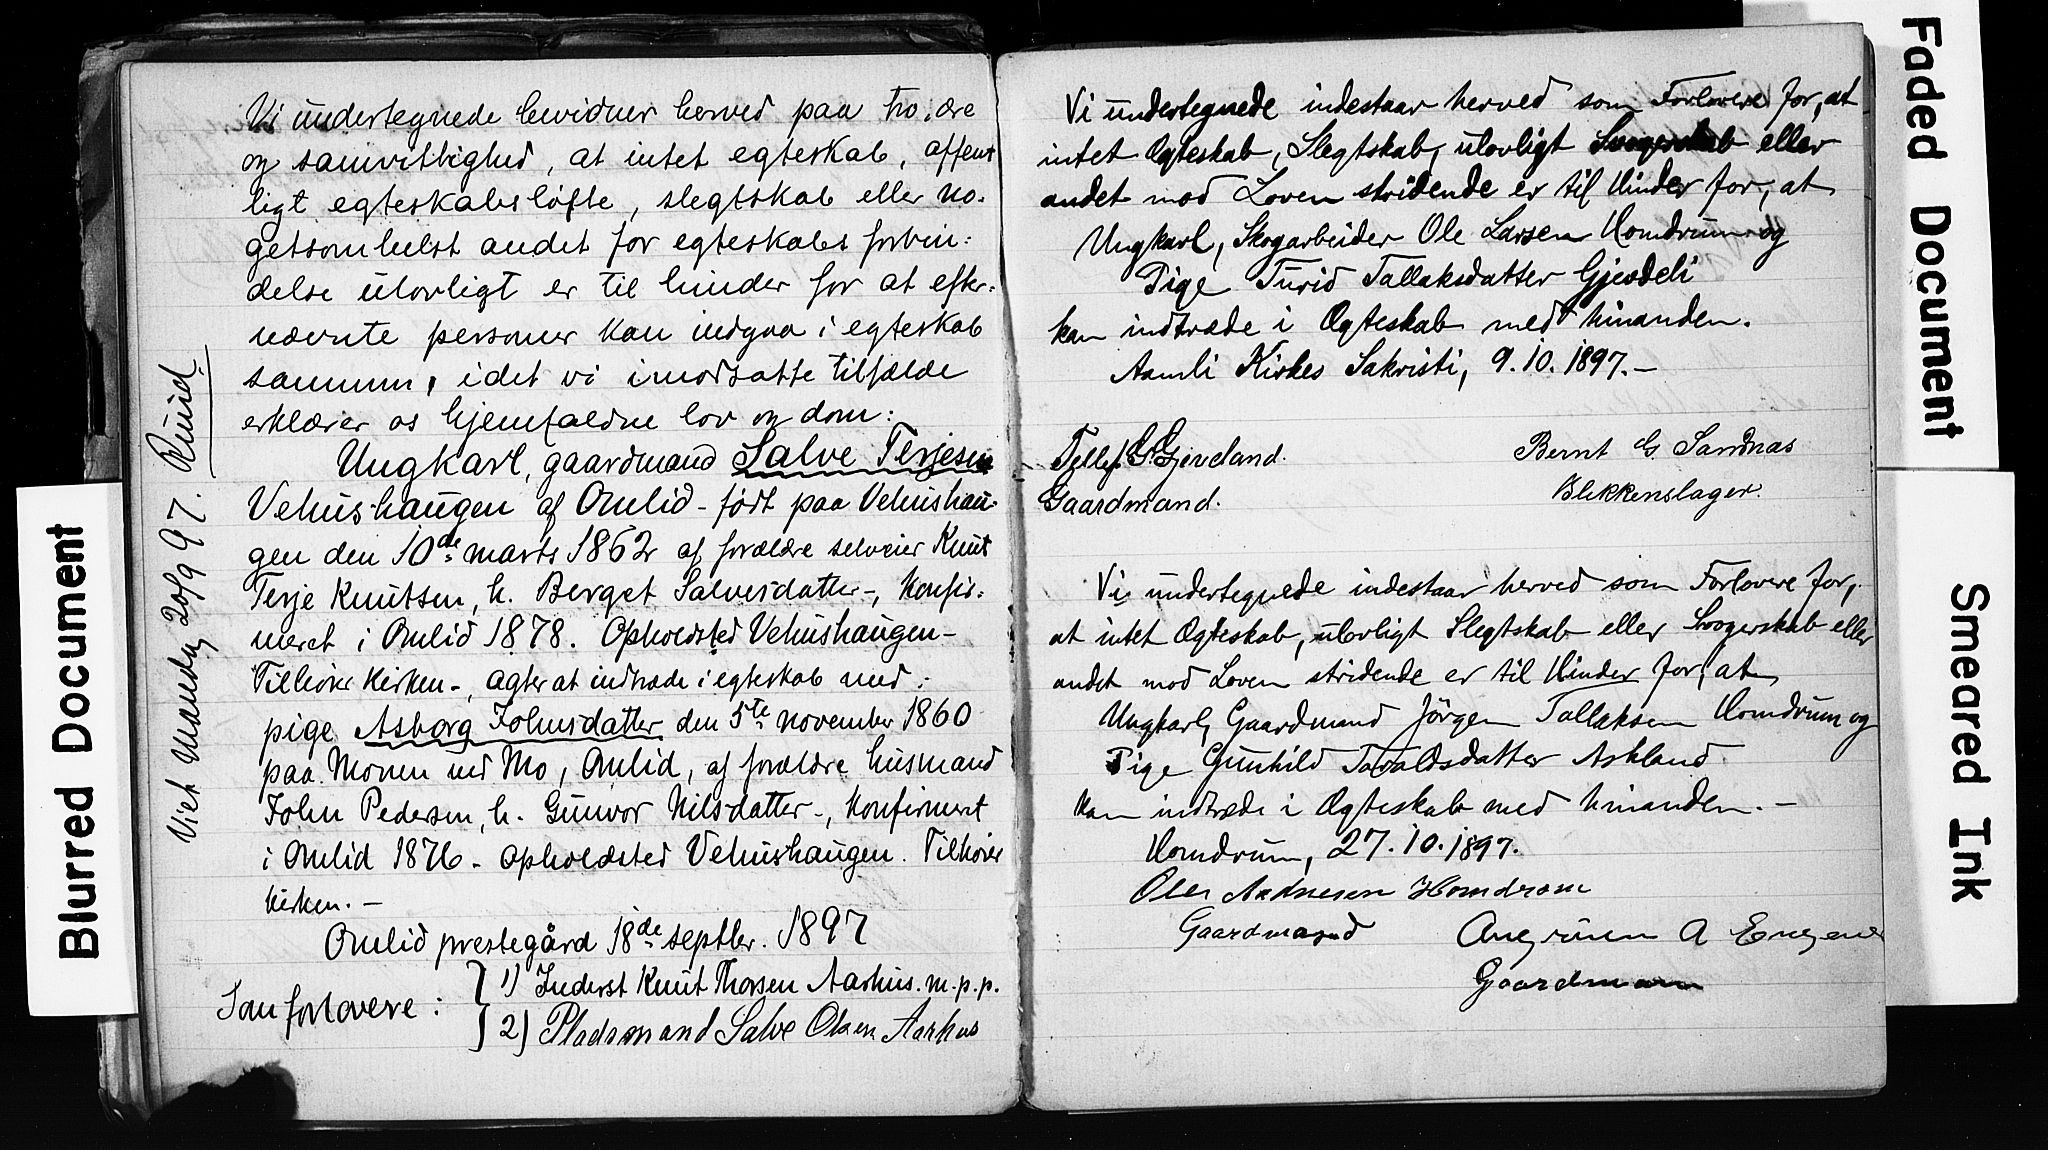 Vi undertegnede bevidner herved paa tro, ære
og samvittighed, at intet egteskab, offent
ligt egteskabsløfte, slegtskab eller no-
getsomhelst andet for egteskabs forbin:
delse ulovligt er til hinder for at efter:
nævnte personer kan indgaa i egteskab
sammen, idet vi i modsatte tilfælde
erklærer os hjemfaldne lov og dom:
Ungkarl, gaardmand Salve Terjesen
Vehushaugen af Omlid - født paa Vehushau-
gen den 10de marts 1862 af forældre selveier Knut
Terje Knutsen, h. Berget Salvesdatter -, Konfir:
meret i Omlid 1878. Opholdsted Vehushaugen -
Tilhører Kirken -, agter at indtræde i egteskab med:
pige Asborg Johnsdatter den 5te november 1860
paa Monen ved Mo, Omlid, af forældre husmand
John Pedersen, h. Gunvor Nilsdatter -, Konfirmeret
i Omlid 1876 - Opholdsted Vehushaugen. Tilhører
Kirken. -
Omlid prestegård 18de septbr. 1897
Som forlovere:
1) Inderst Knut Thorsen Aarhus. m.p.p.
2) Pladsmand Salve Olsen Aarhus
Viet Mandag 20/9 97. Runid
Vi undertegnede indestaar herved som Forlovere for, at
intet Ægteskab, Slegtskab, ulovligt Svogerskab eller
andet mod Loven stridende er til Hinder for, at
Ungkarl, Skogarbeider Ole Larsen Homdrum og
Pige Turid Tallaksdatter Gjevdeli
kan indtræde i Ægteskab med hinanden.
Aamli Kirkes Sakristi, 9.10.1897. -
Tellef G. Gjevland.
Gaardmand.
Bernt G. Sandnas
Blikkenslager.
Vi undertegnede indestaar herved som Forlovere for,
at intet Ægteskab, ulovligt Slegtskab eller Svogerskab eller
andet mod Loven stridende er til Hinder for, at
Ungkarl, Gaardmand Jörgen Tallaksen Homdrum og
Pige Gunhild Tavaldsdatter Askland
kan indtræde i Ægteskab med hinanden. -
Homdrum, 27.10.1897.
Homdrom
Gaardmand
A
Gaardmann
Blurred Document
Faded Document
Smeared Ink